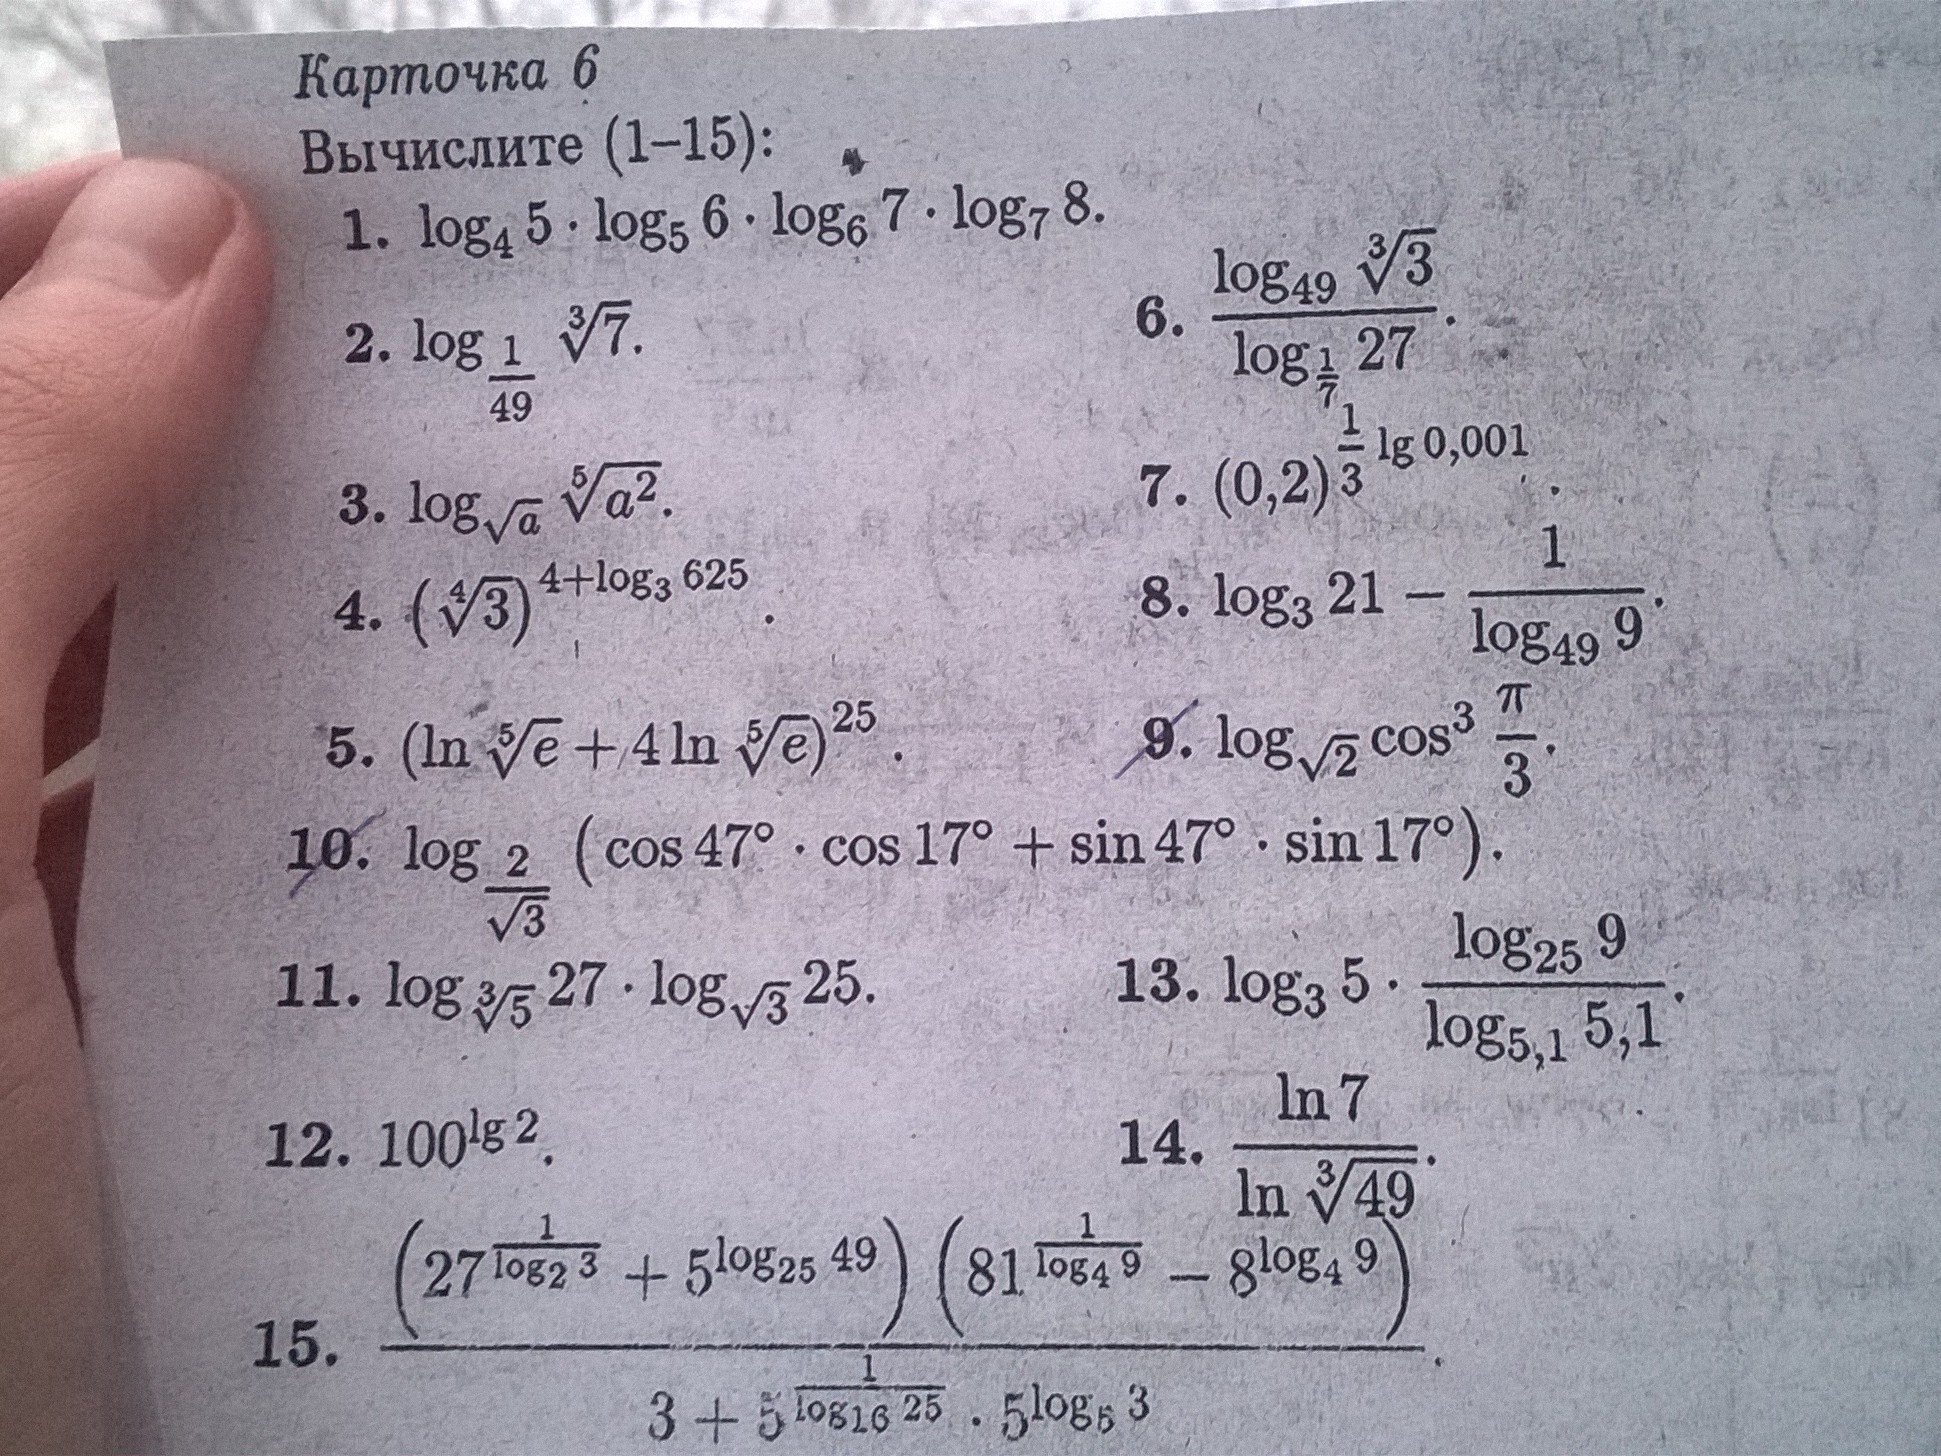 Карточка 6
Вычислите (1–15):
1. log₄ 5 · log₅ 6 · log₆ 7 · log₇ 8.
2. log_{1/49} ∛7.
3. log_{√a} ⁵√(a²).
4. (⁴√3)^{4+log₃ 625}.
5. (ln ⁵√e + 4 ln ⁵√e)²⁵.
6. (log₄₉ ∛3)/(log_{1/7} 27).
7. (0,2)^{(1/3) lg 0,001}.
8. log₃ 21 − 1/(log₄₉ 9).
9. log_{√2} cos³ π/3.
10. log_{2/√3} (cos 47° · cos 17° + sin 47° · sin 17°).
11. log_{∛5} 27 · log_{√3} 25.
12. 100^{lg 2}.
13. log₃ 5 · (log₂₅ 9)/(log_{5,1} 5,1).
14. (ln 7)/(ln ∛49).
15. ((27^{1/(log₂ 3)} + 5^{log₂₅ 49})(81^{1/(log₄ 9)} − 8^{log₄ 9}))/(3 + 5^{1/(log₁₆ 25)} · 5^{log₅ 3}).